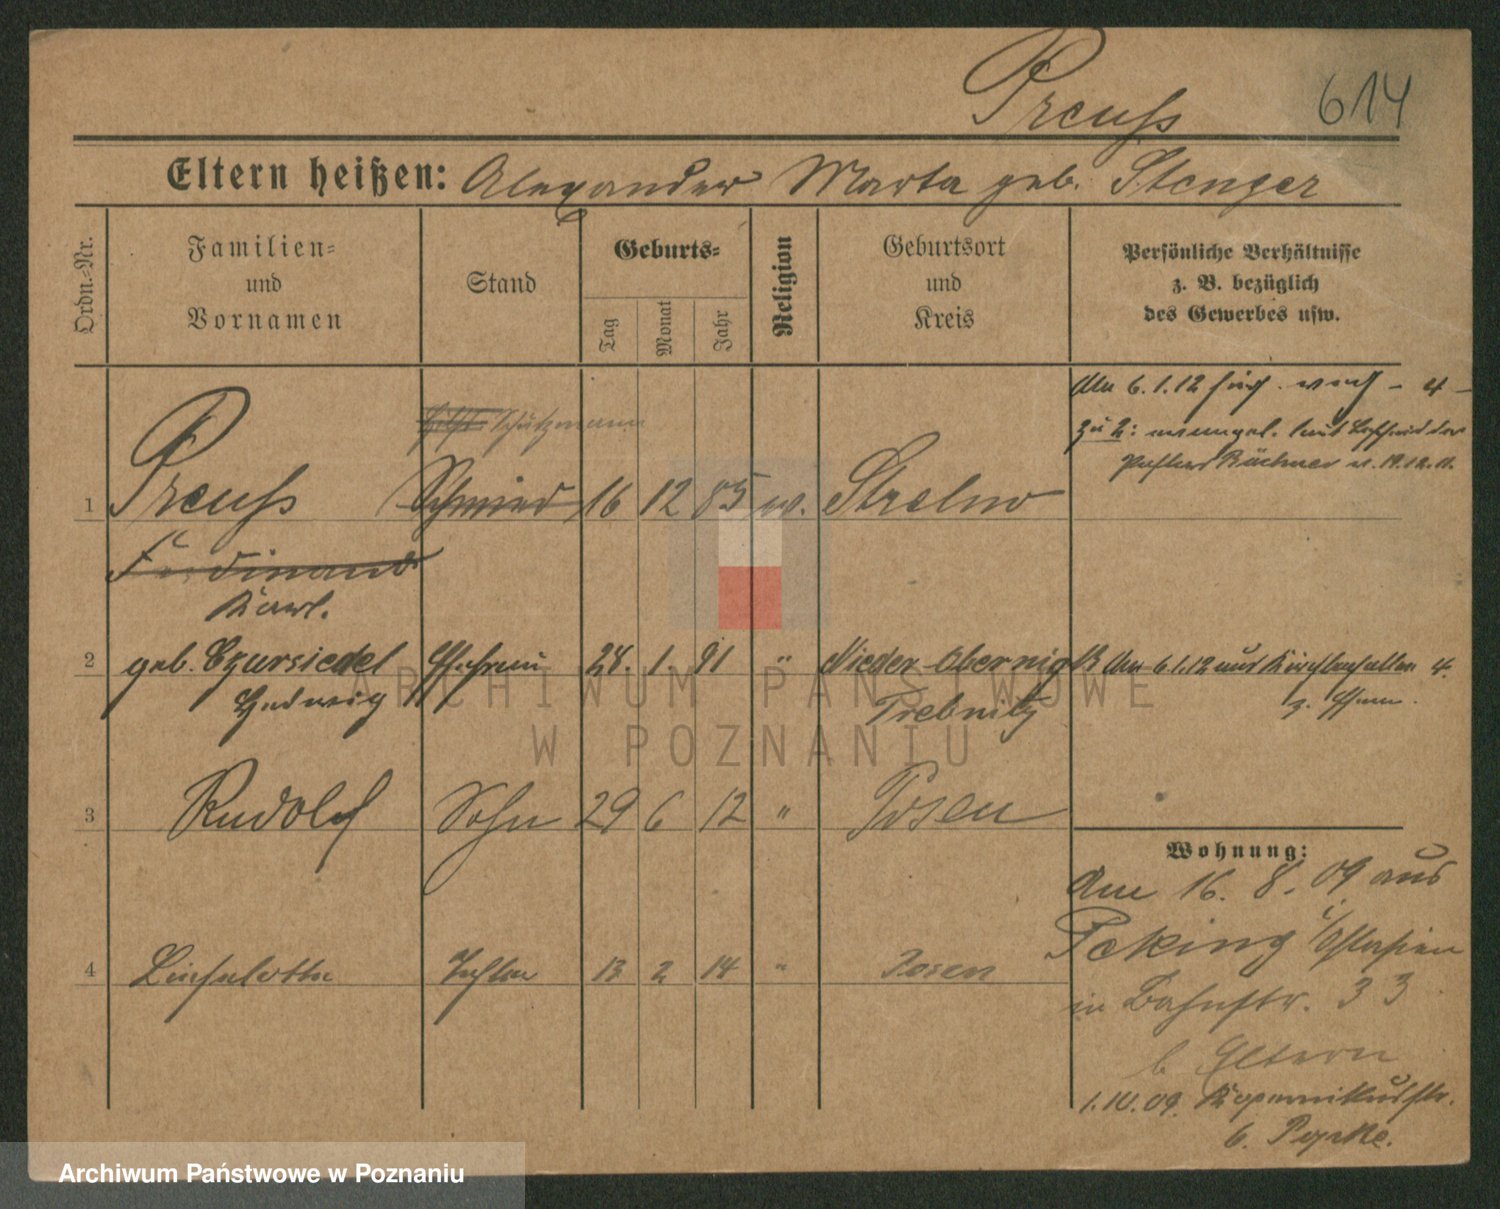 Preuß 614
Eltern heißen: Alexander Marta geb. Stenger
Ordn.-Nr.
Familien- und Vornamen
Stand
Geburts-
Tag
Monat
Jahr
Religion
Geburtsort und Kreis
Persönliche Verhältnisse z. B. bezüglich des Gewerbes usw.
Am 6.1.12
zu 2:
v. 19.12.11.
Schutzmann
1 Preuß Schmied 16 12 85 ev. Strelno
Ferdinand
Karl.
2 geb. Czursiedel Ehefrau 28. 1. 91 " Nieder-Obernigk Am 6.1.12 aus
Hedwig Trebnitz z. Ehem.
3 Rudolf Sohn 29 6 12 " Posen
Wohnung:
Am 16. 8. 09 aus
Peking i/Ostasien
4 Lieselotte Tochter 13 2 14 " Posen
in Bahnstr. 33
b Eltern
1.10.09. Kopernikusstr.
6.
ARCHIWUM PAŃSTWOWE
W POZNANIU
Archiwum Państwowe w Poznaniu